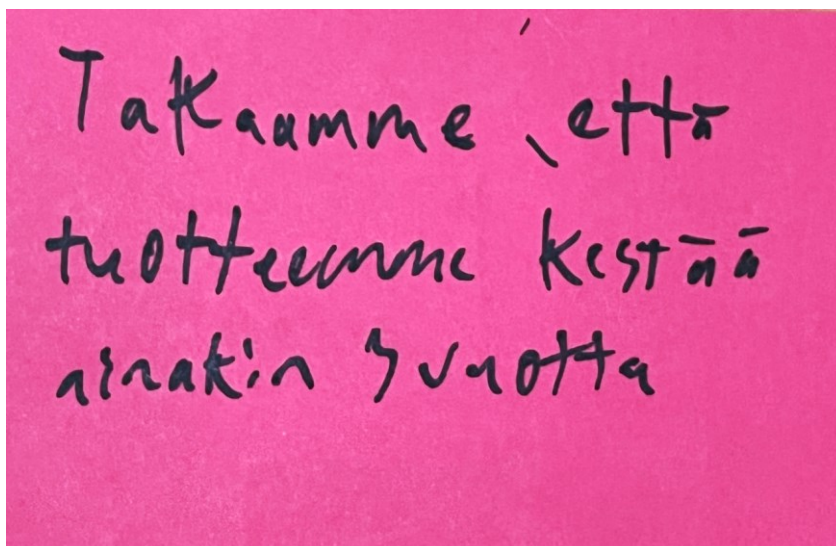 Takaamme, että
tuotteemme kestää
ainakin 3 vuotta